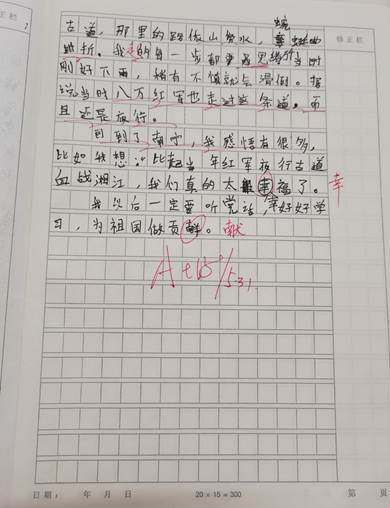 古道，那里的路依山傍水，蜿蜒曲
折。我走的每一步都要
刚好下雨，稍有不慎就会滑倒。据
说当时八万红军也走过这条道。而
且还是夜行。
回到了南宁，我感悟有很多，
比如我想：比起当年红军夜行古道
血战湘江，我们真的太幸福了。幸
我以后一定要听党话，好好学
习，为祖国做贡献。献
A+
5.31.
日期： 年 月 日 20×15=300 第 页